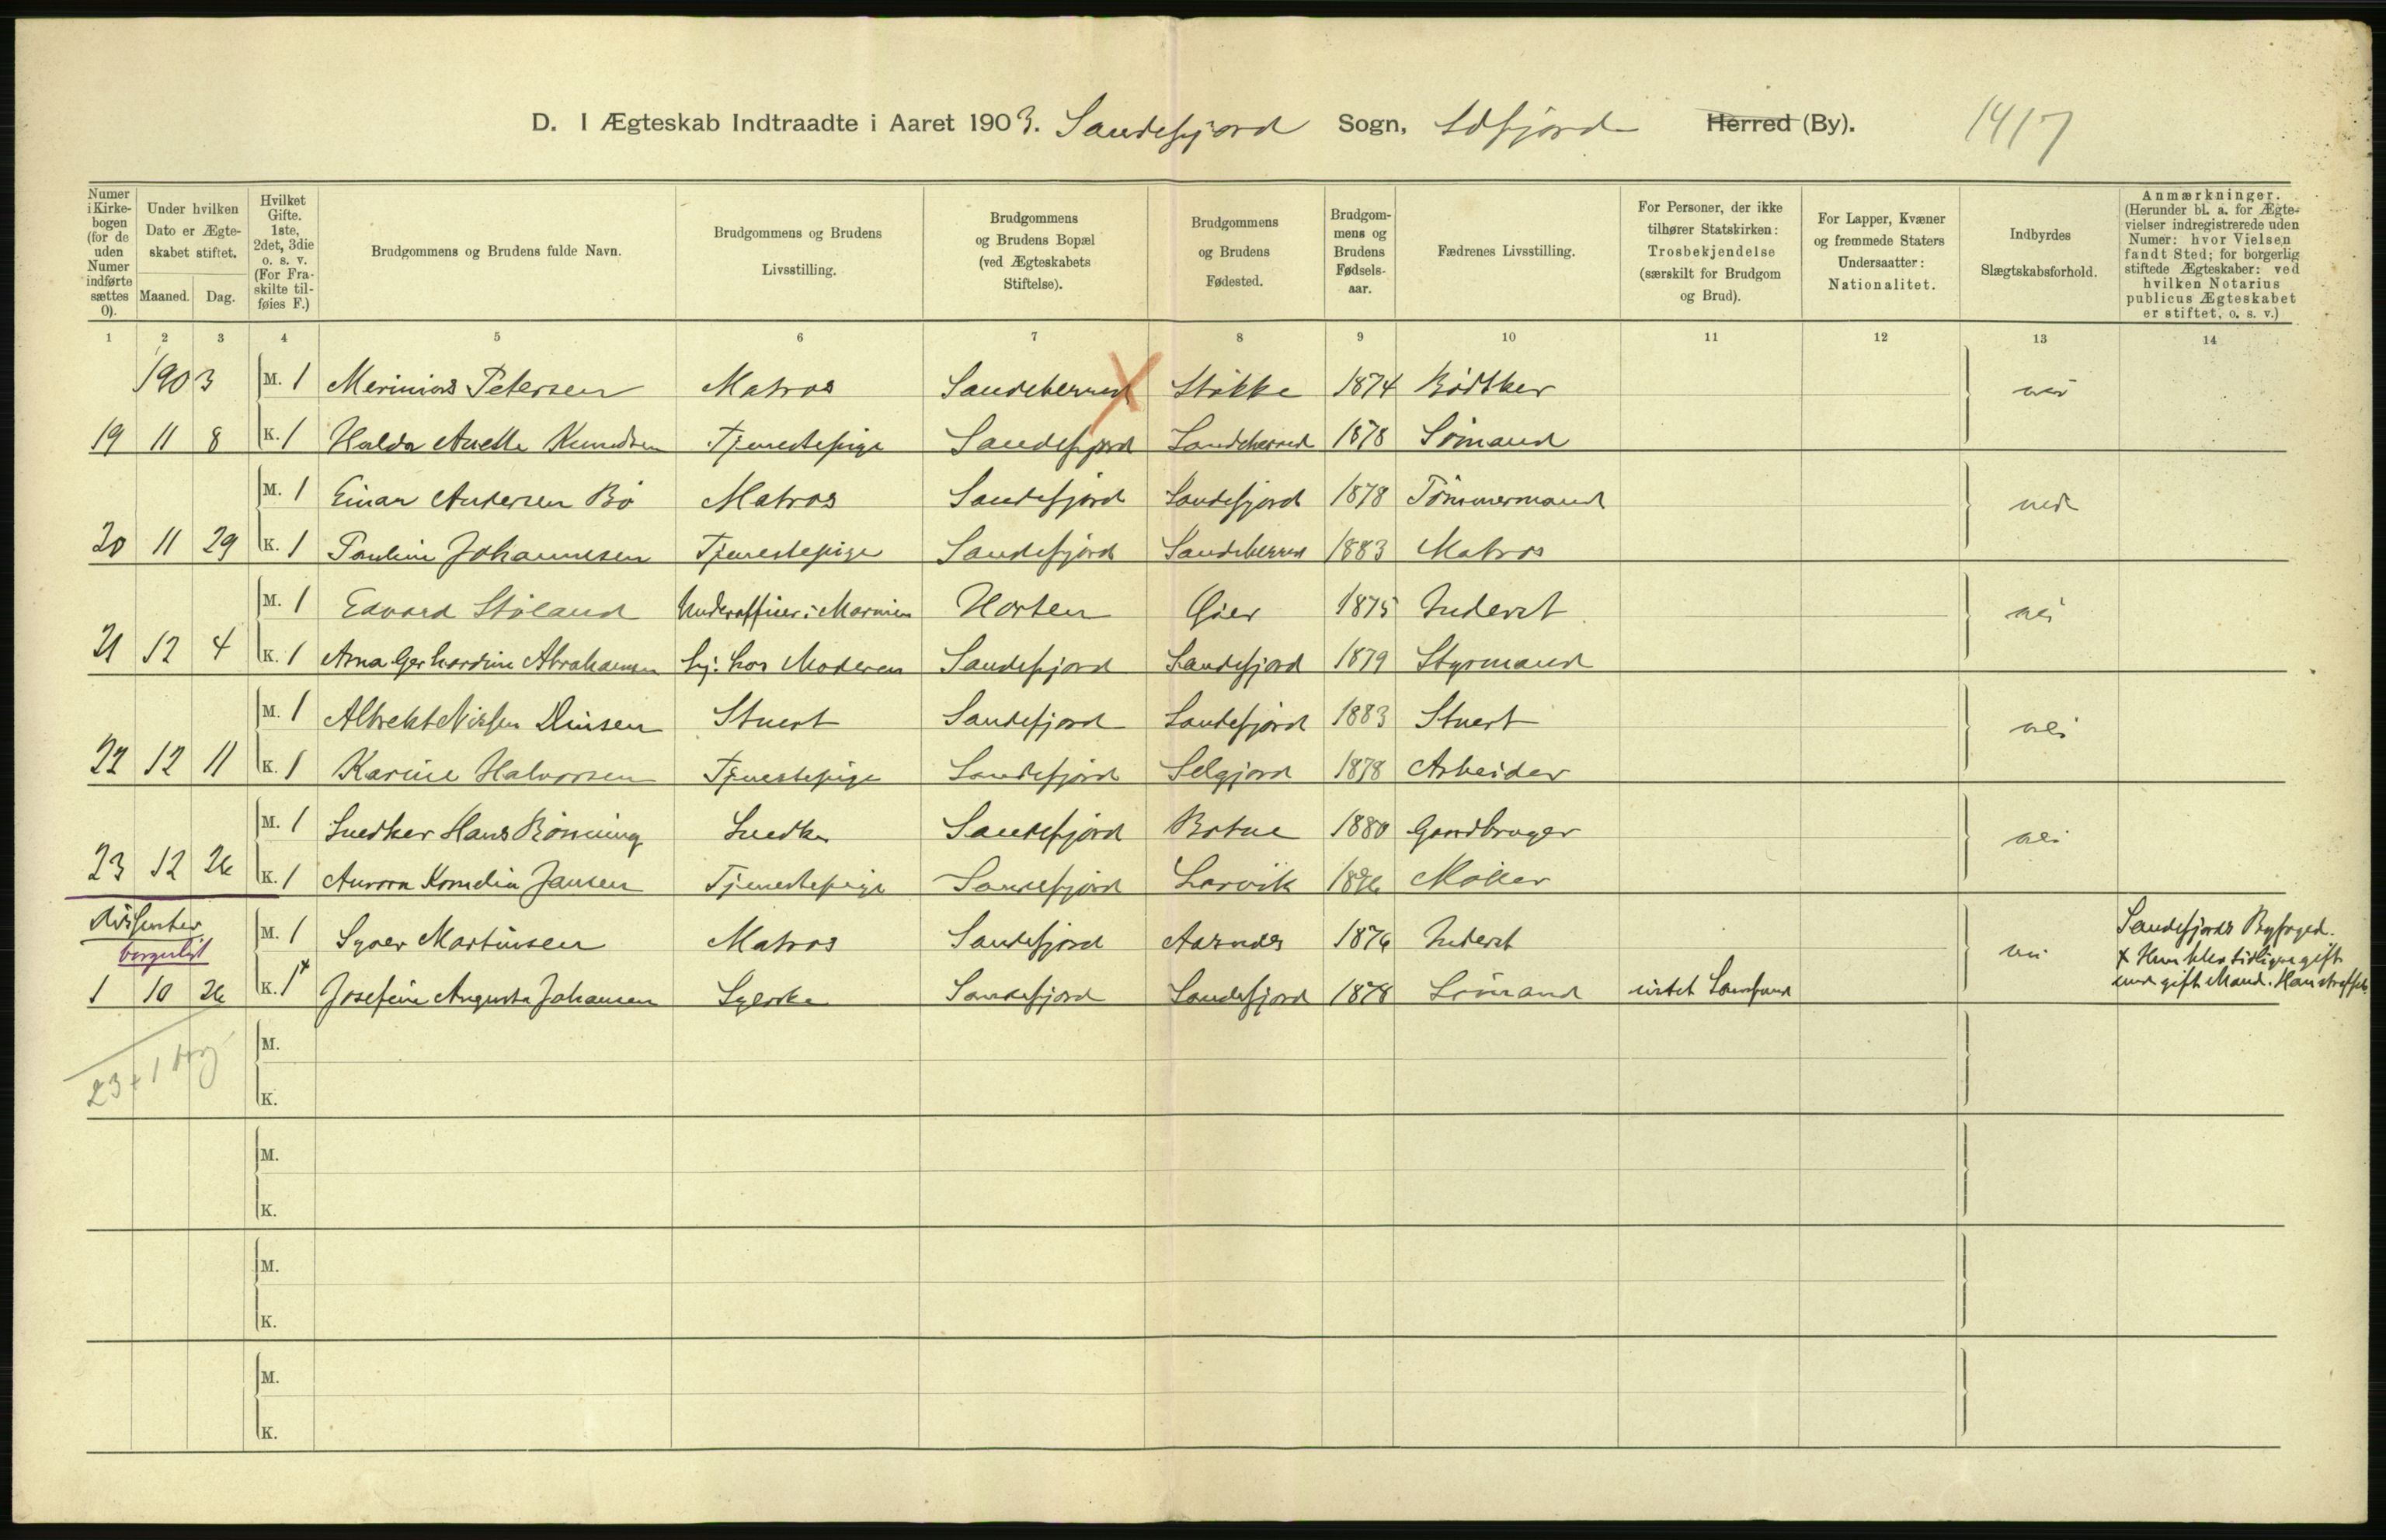 D. I Ægteskab Indtraadte i Aaret 1903. Sandefjord Sogn, Sdfjord Herred (By). 1417
Numer i Kirkebogen (for de uden Numer indførte sættes 0).
Under hvilken Dato er Ægteskabet stiftet.
Maaned. Dag.
Hvilket Gifte. 1ste, 2det, 3die o. s. v. (For Fraskilte tilføies F.)
Brudgommens og Brudens fulde Navn.
Brudgommens og Brudens Livsstilling.
Brudgommens og Brudens Bopæl (ved Ægteskabets Stiftelse).
Brudgommens og Brudens Fødested.
Brudgommens og Brudens Fødselsaar.
Fædrenes Livsstilling.
For Personer, der ikke tilhører Statskirken: Trosbekjendelse (særskilt for Brudgom og Brud).
For Lapper, Kvæner og fremmede Staters Undersaatter: Nationalitet.
Indbyrdes Slægtskabsforhold.
Anmærkninger. (Herunder bl. a. for Ægtevielser indregistrerede uden Numer: hvor Vielsen fandt Sted; for borgerlig stiftede Ægteskaber: ved hvilken Notarius publicus Ægteskabet er stiftet, o. s. v.)
1 2 3 4 5 6 7 8 9 10 11 12 13 14
1903 M. 1 Marinius Petersen Matros Sandeherred Stokke 1874 Bødtker nei
19 11 8 K. 1 Halda Anette Knudsen Tjenestepige Sandefjord Sandeherred 1878 Sømand
M. 1 Einar Andersen Bø Matros Sandefjord Sandefjord 1878 Tømmermand nei
20 11 29 K. 1 Pauline Johannesen Tjenestepige Sandefjord Sandeherred 1883 Matros
M. 1 Edvard Støland Underofficer i Marinen Horten 1875 Inderst nei
21 12 4 K. 1 Anna Gerhardine Abrahamsen hj. hos Moderen Sandefjord Sandefjord 1879 Styrmand
M. 1 Albrekt Nilsen Stuert Sandefjord Sandefjord 1883 Stuert nei
22 12 11 K. 1 Karine Halvorsen Tjenestepige Sandefjord Selgjord 1878 Arbeider
M. 1 Snedker Hans Rønning Snedker Sandefjord Botne 1880 Gaardbruger nei
23 12 26 K. 1 Aurora Kornelia Jansen Tjenestepige Sandefjord Larvik Møller
Dissenter
borgerligt
M. 1 Syver Martinsen Matros Sandefjord Aasnes 1876 Inderst nei Sandefjords Byfoged.
1 10 26 K. 1 x Josefine Augusta Johansen Syerske Sandefjord Sandefjord 1878 Sømand intet Samfund
x Hun blev tidligere gift
med gift Mand. Han straffet.
23 + 1 brg
M.
K.
M.
K.
M.
K.
M.
K.